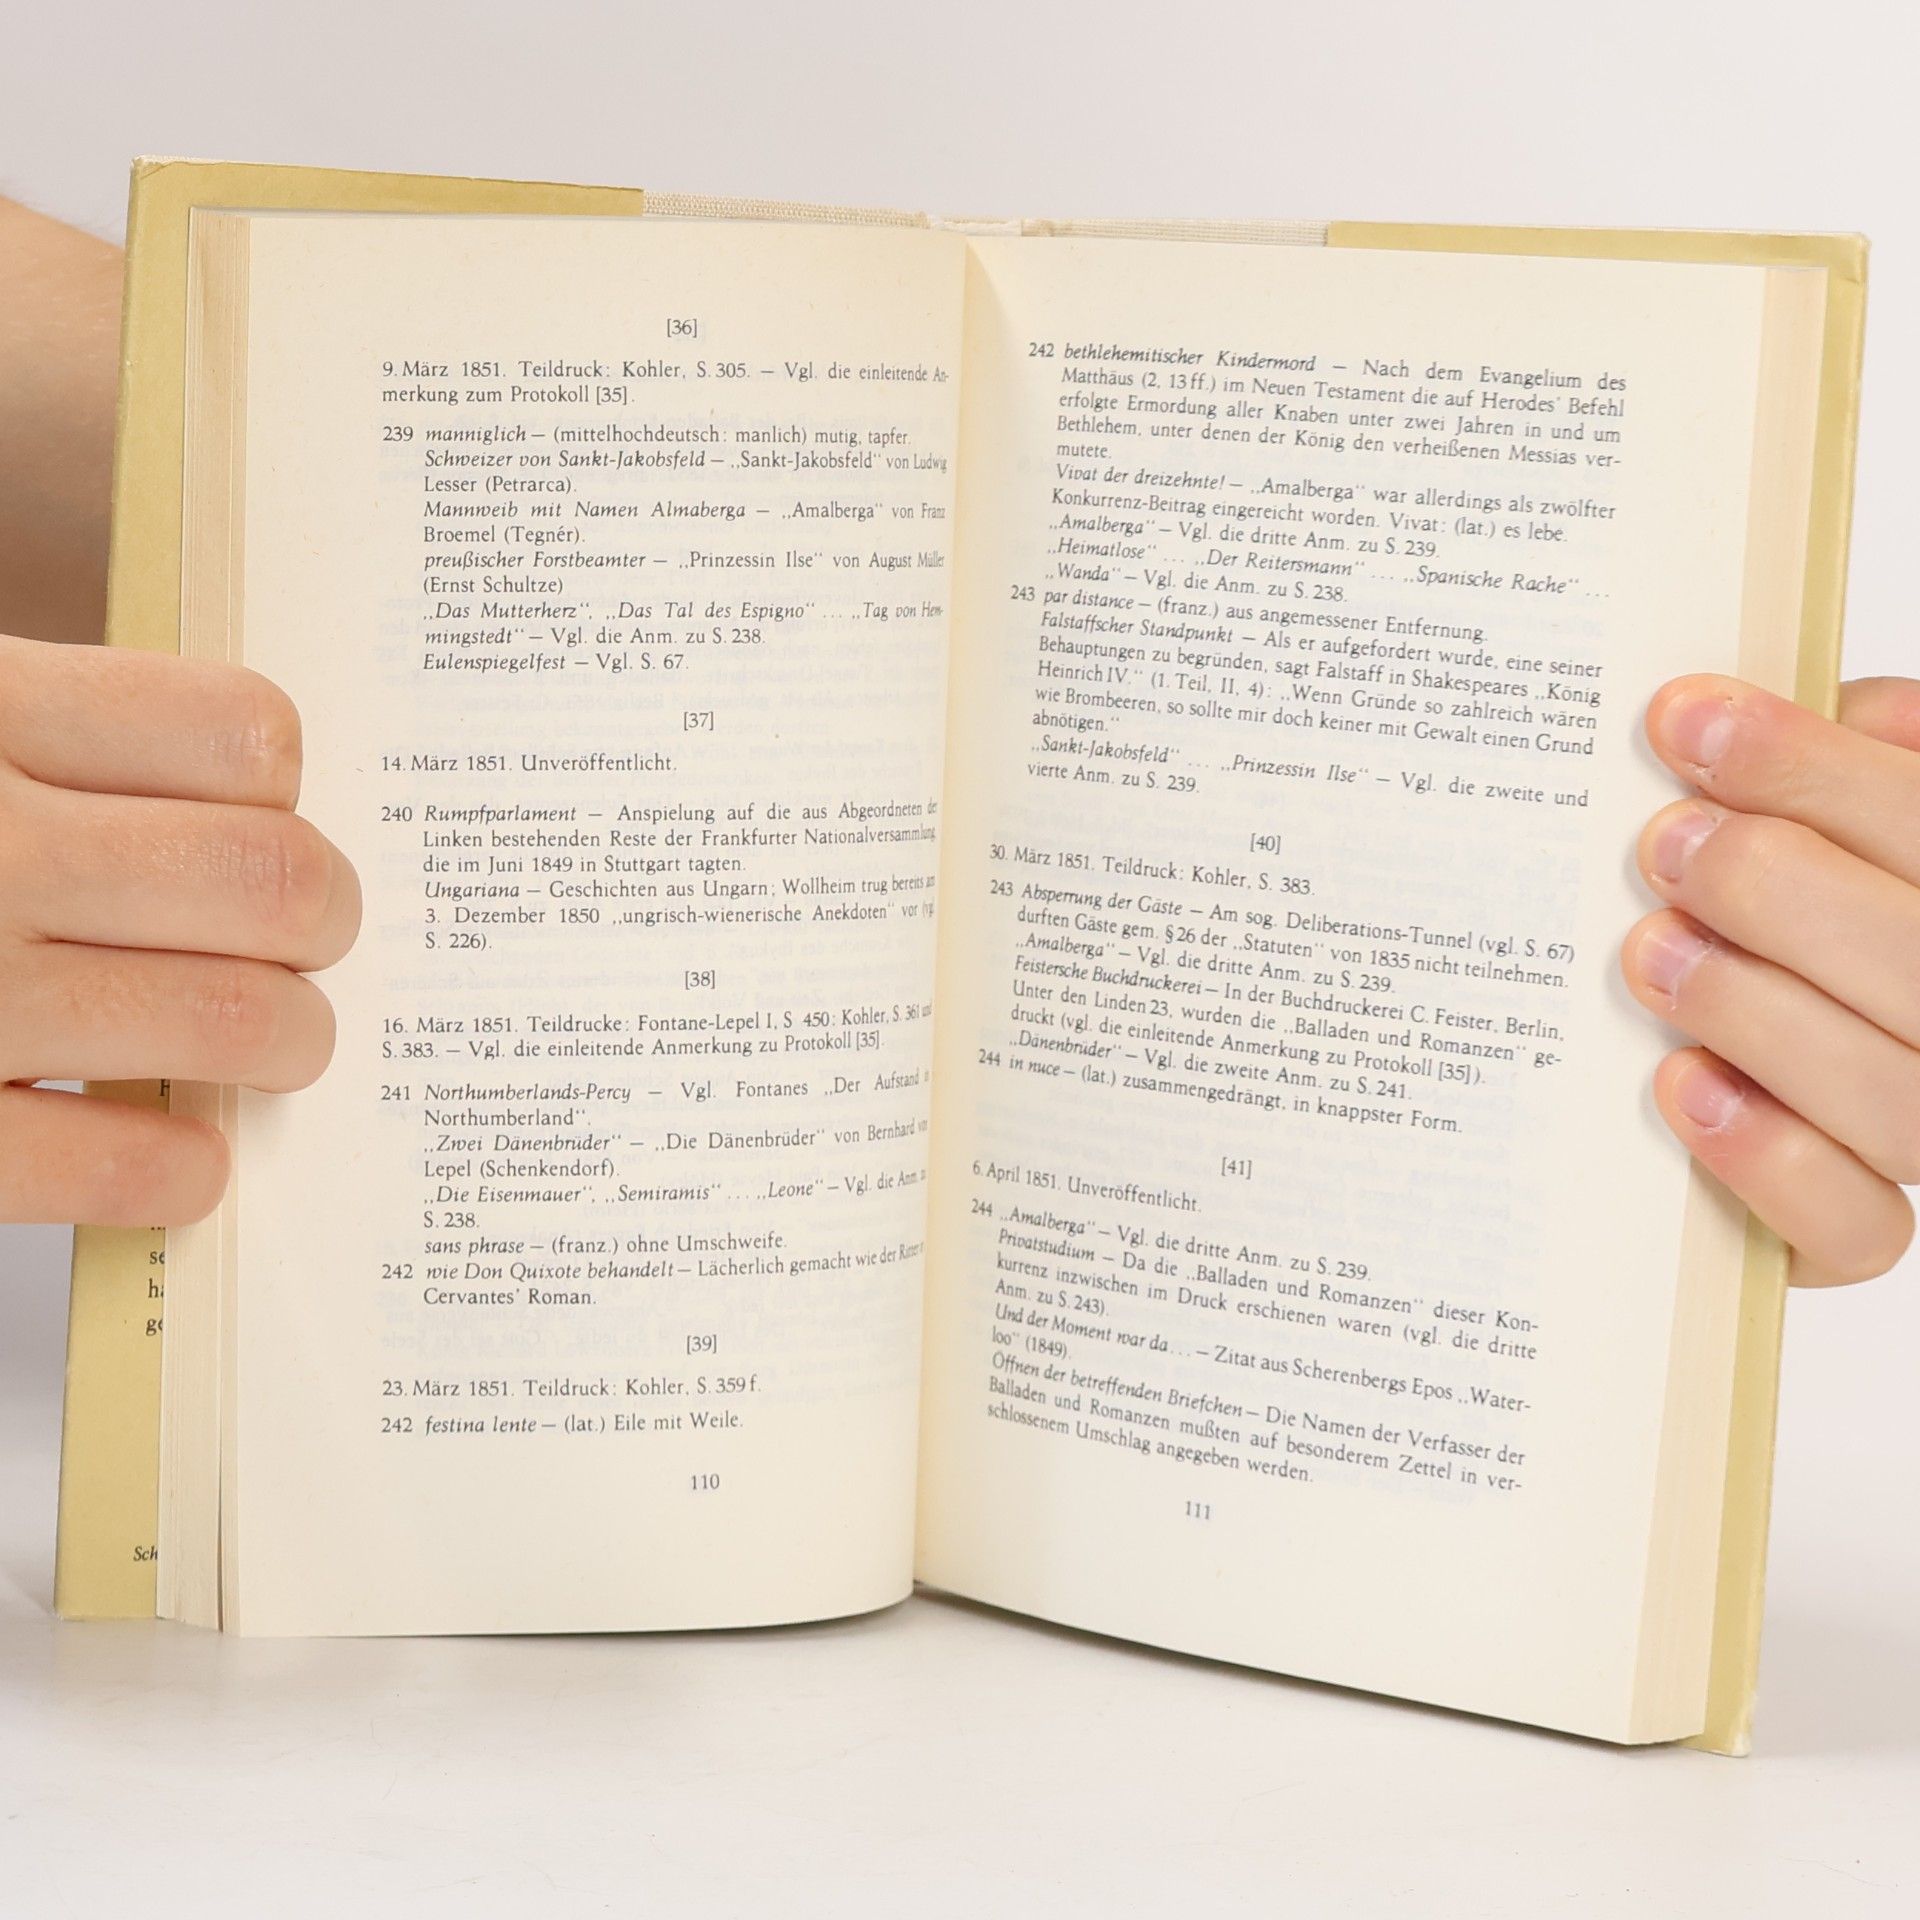 [36]
9. März 1851. Teildruck: Kohler, S. 305. — Vgl. die einleitende An-
merkung zum Protokoll [35].
239 manniglich — (mittelhochdeutsch: manlich) mutig, tapfer.
Schweizer von Sankt-Jakobsfeld — „Sankt-Jakobsfeld“ von Ludwig
Lesser (Petrarca).
Mannweib mit Namen Almaberga — „Amalberga“ von Franz
Broemel (Tegnér).
preußischer Forstbeamter — „Prinzessin Ilse“ von August Müller
(Ernst Schultze)
„Das Mutterherz“, „Das Tal des Espigno“ ... „Tag von Hem-
mingstedt“ — Vgl. die Anm. zu S. 238.
Eulenspiegelfest — Vgl. S. 67.
[37]
14. März 1851. Unveröffentlicht.
240 Rumpfparlament — Anspielung auf die aus Abgeordneten der
Linken bestehenden Reste der Frankfurter Nationalversammlung,
die im Juni 1849 in Stuttgart tagten.
Ungariana — Geschichten aus Ungarn; Wollheim trug bereits am
3. Dezember 1850 „ungrisch-wienerische Anekdoten“ vor (vgl.
S. 226).
[38]
16. März 1851. Teildrucke: Fontane-Lepel I, S 450: Kohler, S. 361 und
S. 383. — Vgl. die einleitende Anmerkung zu Protokoll [35].
241 Northumberlands-Percy — Vgl. Fontanes „Der Aufstand in
Northumberland“.
„Zwei Dänenbrüder“ — „Die Dänenbrüder“ von Bernhard von
Lepel (Schenkendorf).
„Die Eisenmauer“, „Semiramis“ ... „Leone“ — Vgl. die Anm. zu
S. 238.
sans phrase — (franz.) ohne Umschweife.
242 wie Don Quixote behandelt — Lächerlich gemacht wie der Ritter in
Cervantes' Roman.
[39]
23. März 1851. Teildruck: Kohler, S. 359 f.
242 festina lente — (lat.) Eile mit Weile.
110
242 bethlehemitischer Kindermord — Nach dem Evangelium des
Matthäus (2, 13 ff.) im Neuen Testament die auf Herodes' Befehl
erfolgte Ermordung aller Knaben unter zwei Jahren in und um
Bethlehem, unter denen der König den verheißenen Messias ver-
mutete.
Vivat der dreizehnte! — „Amalberga“ war allerdings als zwölfter
Konkurrenz-Beitrag eingereicht worden. Vivat: (lat.) es lebe.
„Amalberga“ — Vgl. die dritte Anm. zu S. 239.
„Heimatlose“ ... „Der Reitersmann“ ... „Spanische Rache“ ...
„Wanda“ — Vgl. die Anm. zu S. 238.
243 par distance — (franz.) aus angemessener Entfernung.
Falstaffscher Standpunkt — Als er aufgefordert wurde, eine seiner
Behauptungen zu begründen, sagt Falstaff in Shakespeares „König
Heinrich IV.“ (1. Teil, II, 4): „Wenn Gründe so zahlreich wären
wie Brombeeren, so sollte mir doch keiner mit Gewalt einen Grund
abnötigen.“
„Sankt-Jakobsfeld“ ... „Prinzessin Ilse“ — Vgl. die zweite und
vierte Anm. zu S. 239.
[40]
30. März 1851. Teildruck: Kohler, S. 383.
243 Absperrung der Gäste — Am sog. Deliberations-Tunnel (vgl. S. 67)
durften Gäste gem. § 26 der „Statuten“ von 1835 nicht teilnehmen.
„Amalberga“ — Vgl. die dritte Anm. zu S. 239.
Feistersche Buchdruckerei — In der Buchdruckerei C. Feister, Berlin,
Unter den Linden 23, wurden die „Balladen und Romanzen“ ge-
druckt (vgl. die einleitende Anmerkung zu Protokoll [35]).
„Dänenbrüder“ — Vgl. die zweite Anm. zu S. 241.
244 in nuce — (lat.) zusammengedrängt, in knappster Form.
[41]
6. April 1851. Unveröffentlicht.
244 „Amalberga“ — Vgl. die dritte Anm. zu S. 239.
Privatstudium — Da die „Balladen und Romanzen“ dieser Kon-
kurrenz inzwischen im Druck erschienen waren (vgl. die dritte
Anm. zu S. 243).
Und der Moment war da ... — Zitat aus Scherenbergs Epos „Water-
loo“ (1849).
Öffnen der betreffenden Briefchen — Die Namen der Verfasser der
Balladen und Romanzen mußten auf besonderem Zettel in ver-
schlossenem Umschlag angegeben werden.
111